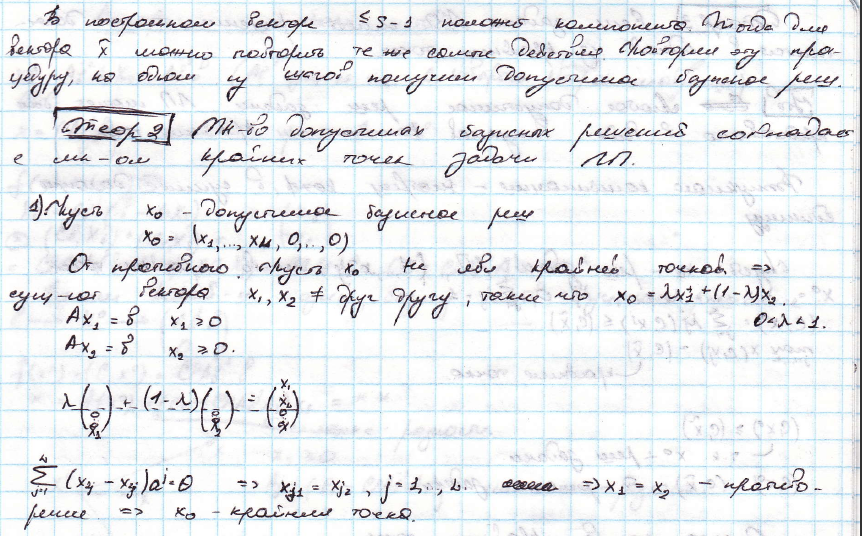 В построенном векторе ≤ S-1 полож компонента. Тогда для
вектора x̃ можно повторить те же самые действия. Повторяя эту про-
цедуру, на одном из шагов получим допустимое базисное реш.
Теор 2 Мн-во допустимых базисных решений совпадает
с мн-ом крайних точек задачи ЛП.
1) Пусть x₀ - допустимое базисное реш
x₀ = (x₁,..., xₘ, 0,..., 0)
От противного. Пусть x₀ не явл крайней точкой =>
сущ-ют вектора x₁, x₂ ≠ друг другу, такие что x₀ = λx₁ + (1-λ)x₂.
Ax₁ = b x₁ ≥ 0 0<λ<1.
Ax₂ = b x₂ ≥ 0.
λ( ) + (1-λ)( ) = ( )
∑ ( - )aʲ = 0 => xⱼ₁ = xⱼ₂, j = 1,.., => x₁ = x₂ - против-
речие => x₀ - крайняя точка.